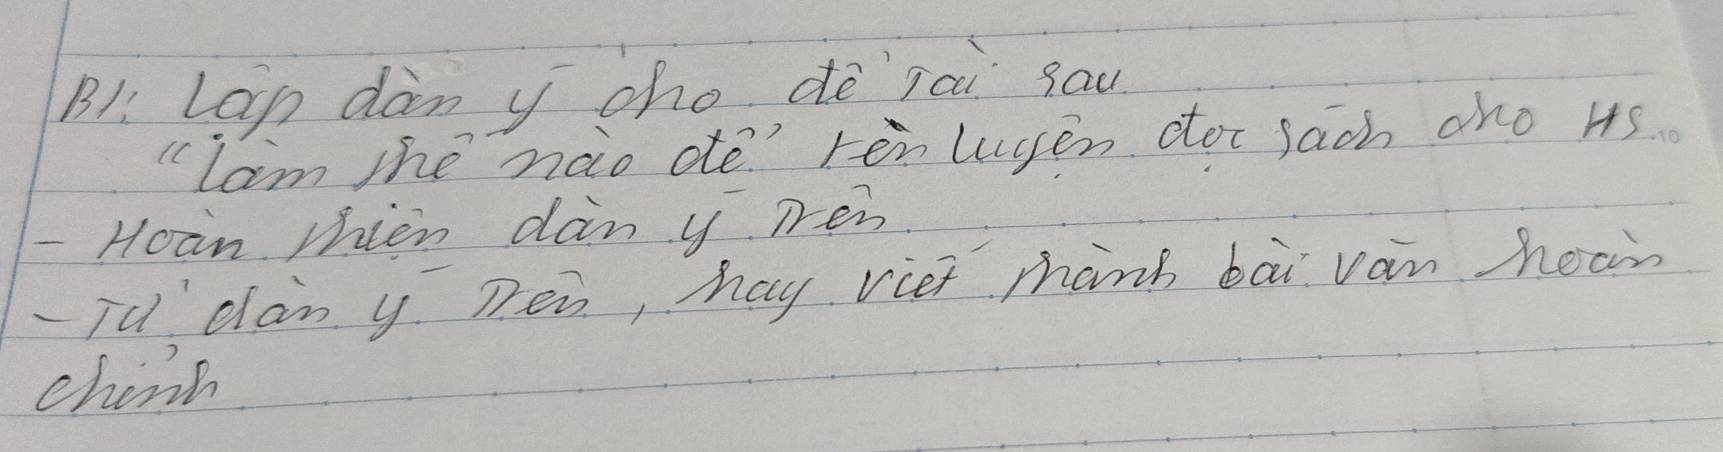 B1: Lập dàn ý cho đề tài sau
"Làm thế nào để rèn luyện đọc sách cho HS
- Hoàn thiện dàn ý trên
- Từ dàn ý trên, hãy viết thành bài văn hoàn
chỉnh